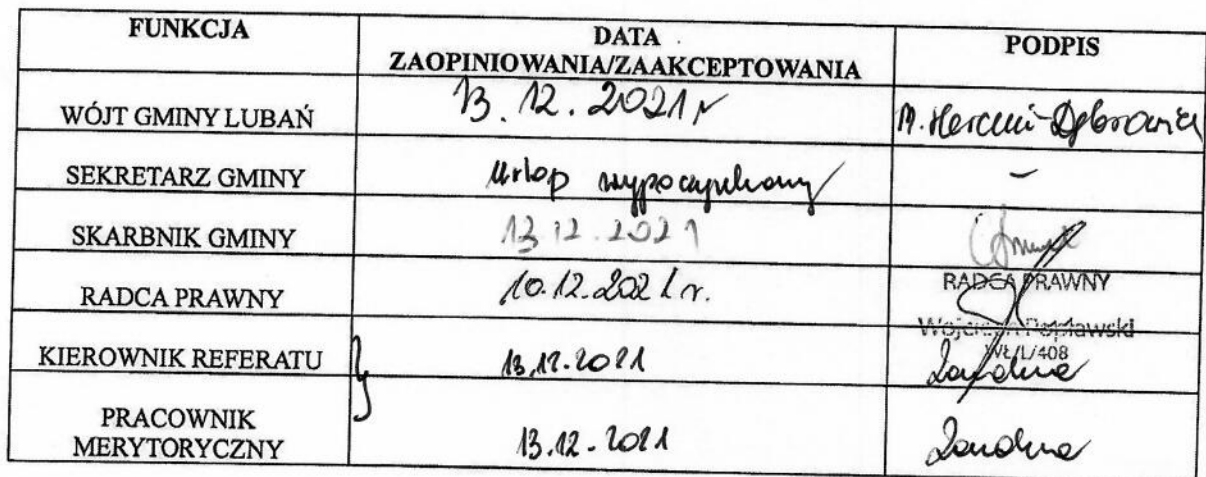 FUNKCJA
DATA
ZAOPINIOWANIA/ZAAKCEPTOWANIA
PODPIS
WÓJT GMINY LUBAŃ
13.12.2021 r
M. Hercuń-Dąbrowska
SEKRETARZ GMINY
urlop wypoczynkowy
–
SKARBNIK GMINY
13 12.2021
RADCA PRAWNY
10.12.2021 r.
RADCA PRAWNY
Wojciech Popławski
WŁ/L/408
KIEROWNIK REFERATU
13.12.2021
PRACOWNIK
MERYTORYCZNY
13.12.2021